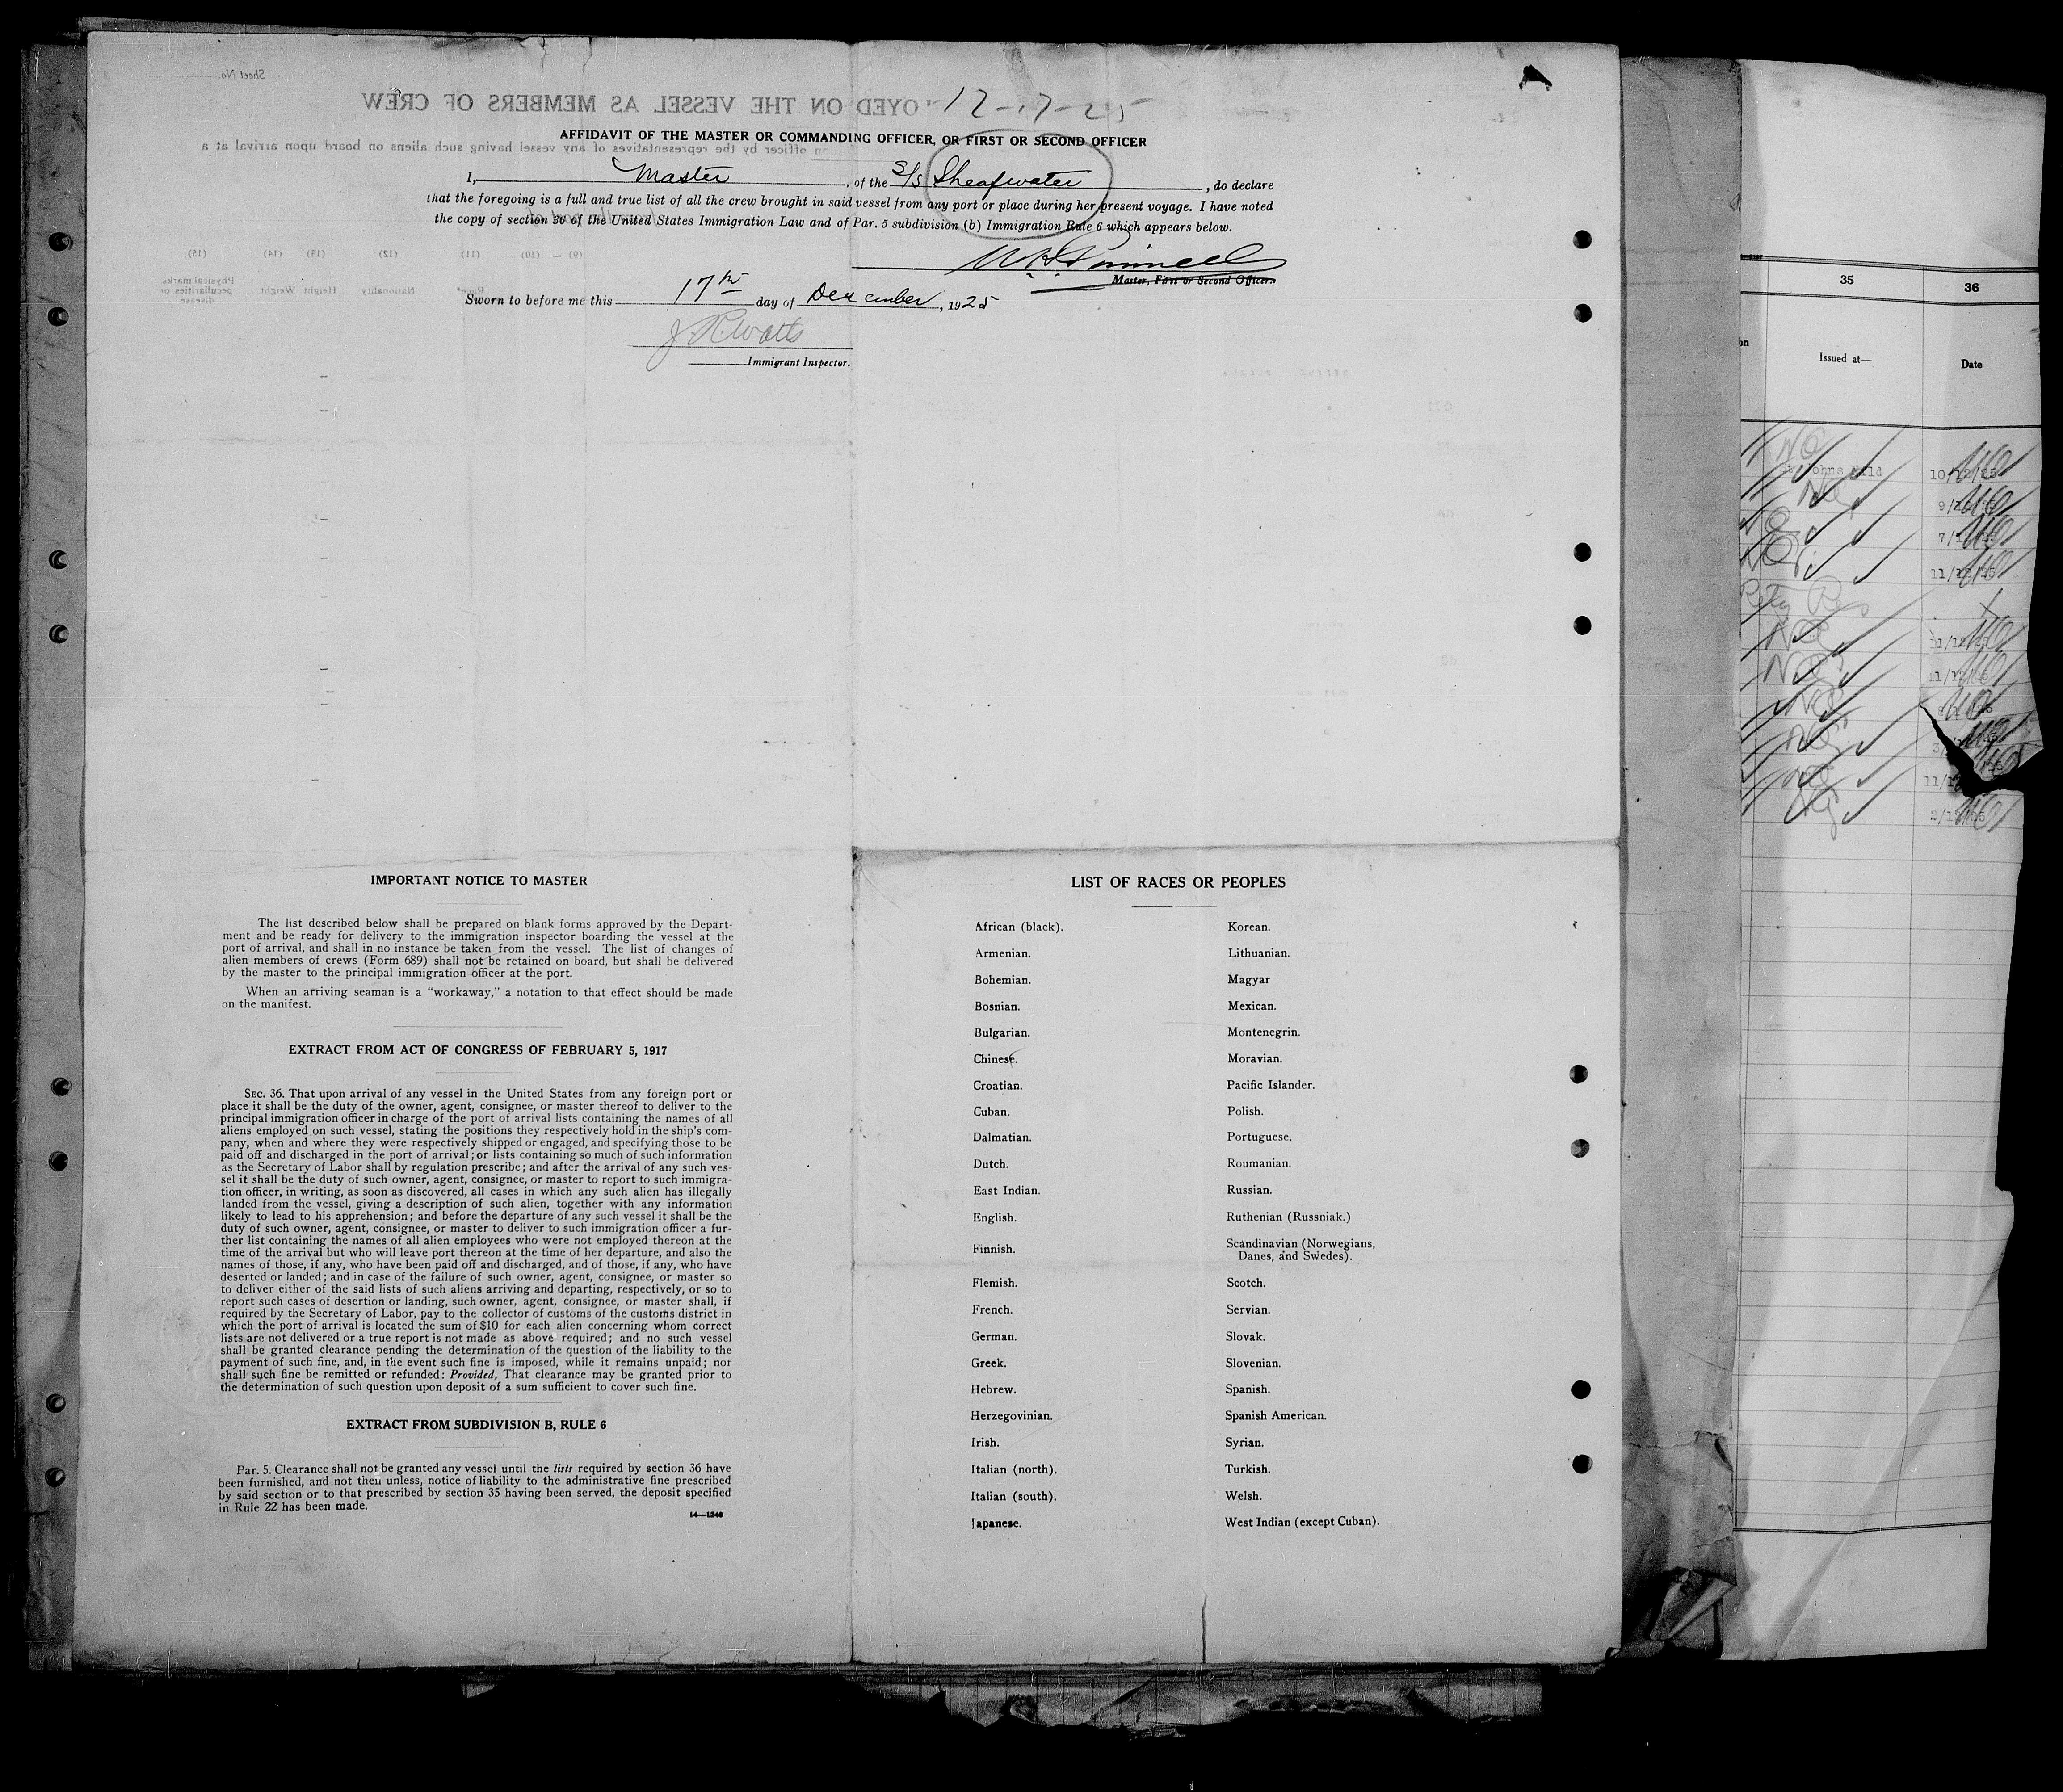 12-17-25
AFFIDAVIT OF THE MASTER OR COMMANDING OFFICER, OR FIRST OR SECOND OFFICER
I, Master, of the S/S Sheafwater, do declare
that the foregoing is a full and true list of all the crew brought in said vessel from any port or place during her present voyage. I have noted
the copy of section 36 of the United States Immigration Law and of Par. 5 subdivision (b) Immigration Rule 6 which appears below.
Master, First or Second Officer.
Sworn to before me this 17th day of December, 1925
Immigrant Inspector.
IMPORTANT NOTICE TO MASTER
The list described below shall be prepared on blank forms approved by the Depart-
ment and be ready for delivery to the immigration inspector boarding the vessel at the
port of arrival, and shall in no instance be taken from the vessel. The list of changes of
alien members of crews (Form 689) shall not be retained on board, but shall be delivered
by the master to the principal immigration officer at the port.
When an arriving seaman is a “workaway,” a notation to that effect should be made
on the manifest.
EXTRACT FROM ACT OF CONGRESS OF FEBRUARY 5, 1917
SEC. 36. That upon arrival of any vessel in the United States from any foreign port or
place it shall be the duty of the owner, agent, consignee, or master thereof to deliver to the
principal immigration officer in charge of the port of arrival lists containing the names of all
aliens employed on such vessel, stating the positions they respectively hold in the ship's com-
pany, when and where they were respectively shipped or engaged, and specifying those to be
paid off and discharged in the port of arrival; or lists containing so much of such information
as the Secretary of Labor shall by regulation prescribe; and after the arrival of any such ves-
sel it shall be the duty of such owner, agent, consignee, or master to report to such immigra-
tion officer, in writing, as soon as discovered, all cases in which any such alien has illegally
landed from the vessel, giving a description of such alien, together with any information
likely to lead to his apprehension; and before the departure of any such vessel it shall be the
duty of such owner, agent, consignee, or master to deliver to such immigration officer a fur-
ther list containing the names of all alien employees who were not employed thereon at the
time of the arrival but who will leave port thereon at the time of her departure, and also the
names of those, if any, who have been paid off and discharged, and of those, if any, who have
deserted or landed; and in case of the failure of such owner, agent, consignee, or master so
to deliver either of the said lists of such aliens arriving and departing, respectively, or so to
report such cases of desertion or landing, such owner, agent, consignee, or master shall, if
required by the Secretary of Labor, pay to the collector of customs of the customs district in
which the port of arrival is located the sum of $10 for each alien concerning whom correct
lists are not delivered or a true report is not made as above required; and no such vessel
shall be granted clearance pending the determination of the question of the liability to the
payment of such fine, and, in the event such fine is imposed, while it remains unpaid; nor
shall such fine be remitted or refunded: Provided, That clearance may be granted prior to
the determination of such question upon deposit of a sum sufficient to cover such fine.
EXTRACT FROM SUBDIVISION B, RULE 6
Par. 5. Clearance shall not be granted any vessel until the lists required by section 36 have
been furnished, and not then unless, notice of liability to the administrative fine prescribed
by said section or to that prescribed by section 35 having been served, the deposit specified
in Rule 22 has been made.
14—1240
LIST OF RACES OR PEOPLES
African (black).
Armenian.
Bohemian.
Bosnian.
Bulgarian.
Chinese.
Croatian.
Cuban.
Dalmatian.
Dutch.
East Indian.
English.
Finnish.
Flemish.
French.
German.
Greek.
Hebrew.
Herzegovinian.
Irish.
Italian (north).
Italian (south).
Japanese.
Korean.
Lithuanian.
Magyar
Mexican.
Montenegrin.
Moravian.
Pacific Islander.
Polish.
Portuguese.
Roumanian.
Russian.
Ruthenian (Russniak.)
Scandinavian (Norwegians,
Danes, and Swedes).
Scotch.
Servian.
Slovak.
Slovenian.
Spanish.
Spanish American.
Syrian.
Turkish.
Welsh.
West Indian (except Cuban).
35 36
Issued at— Date